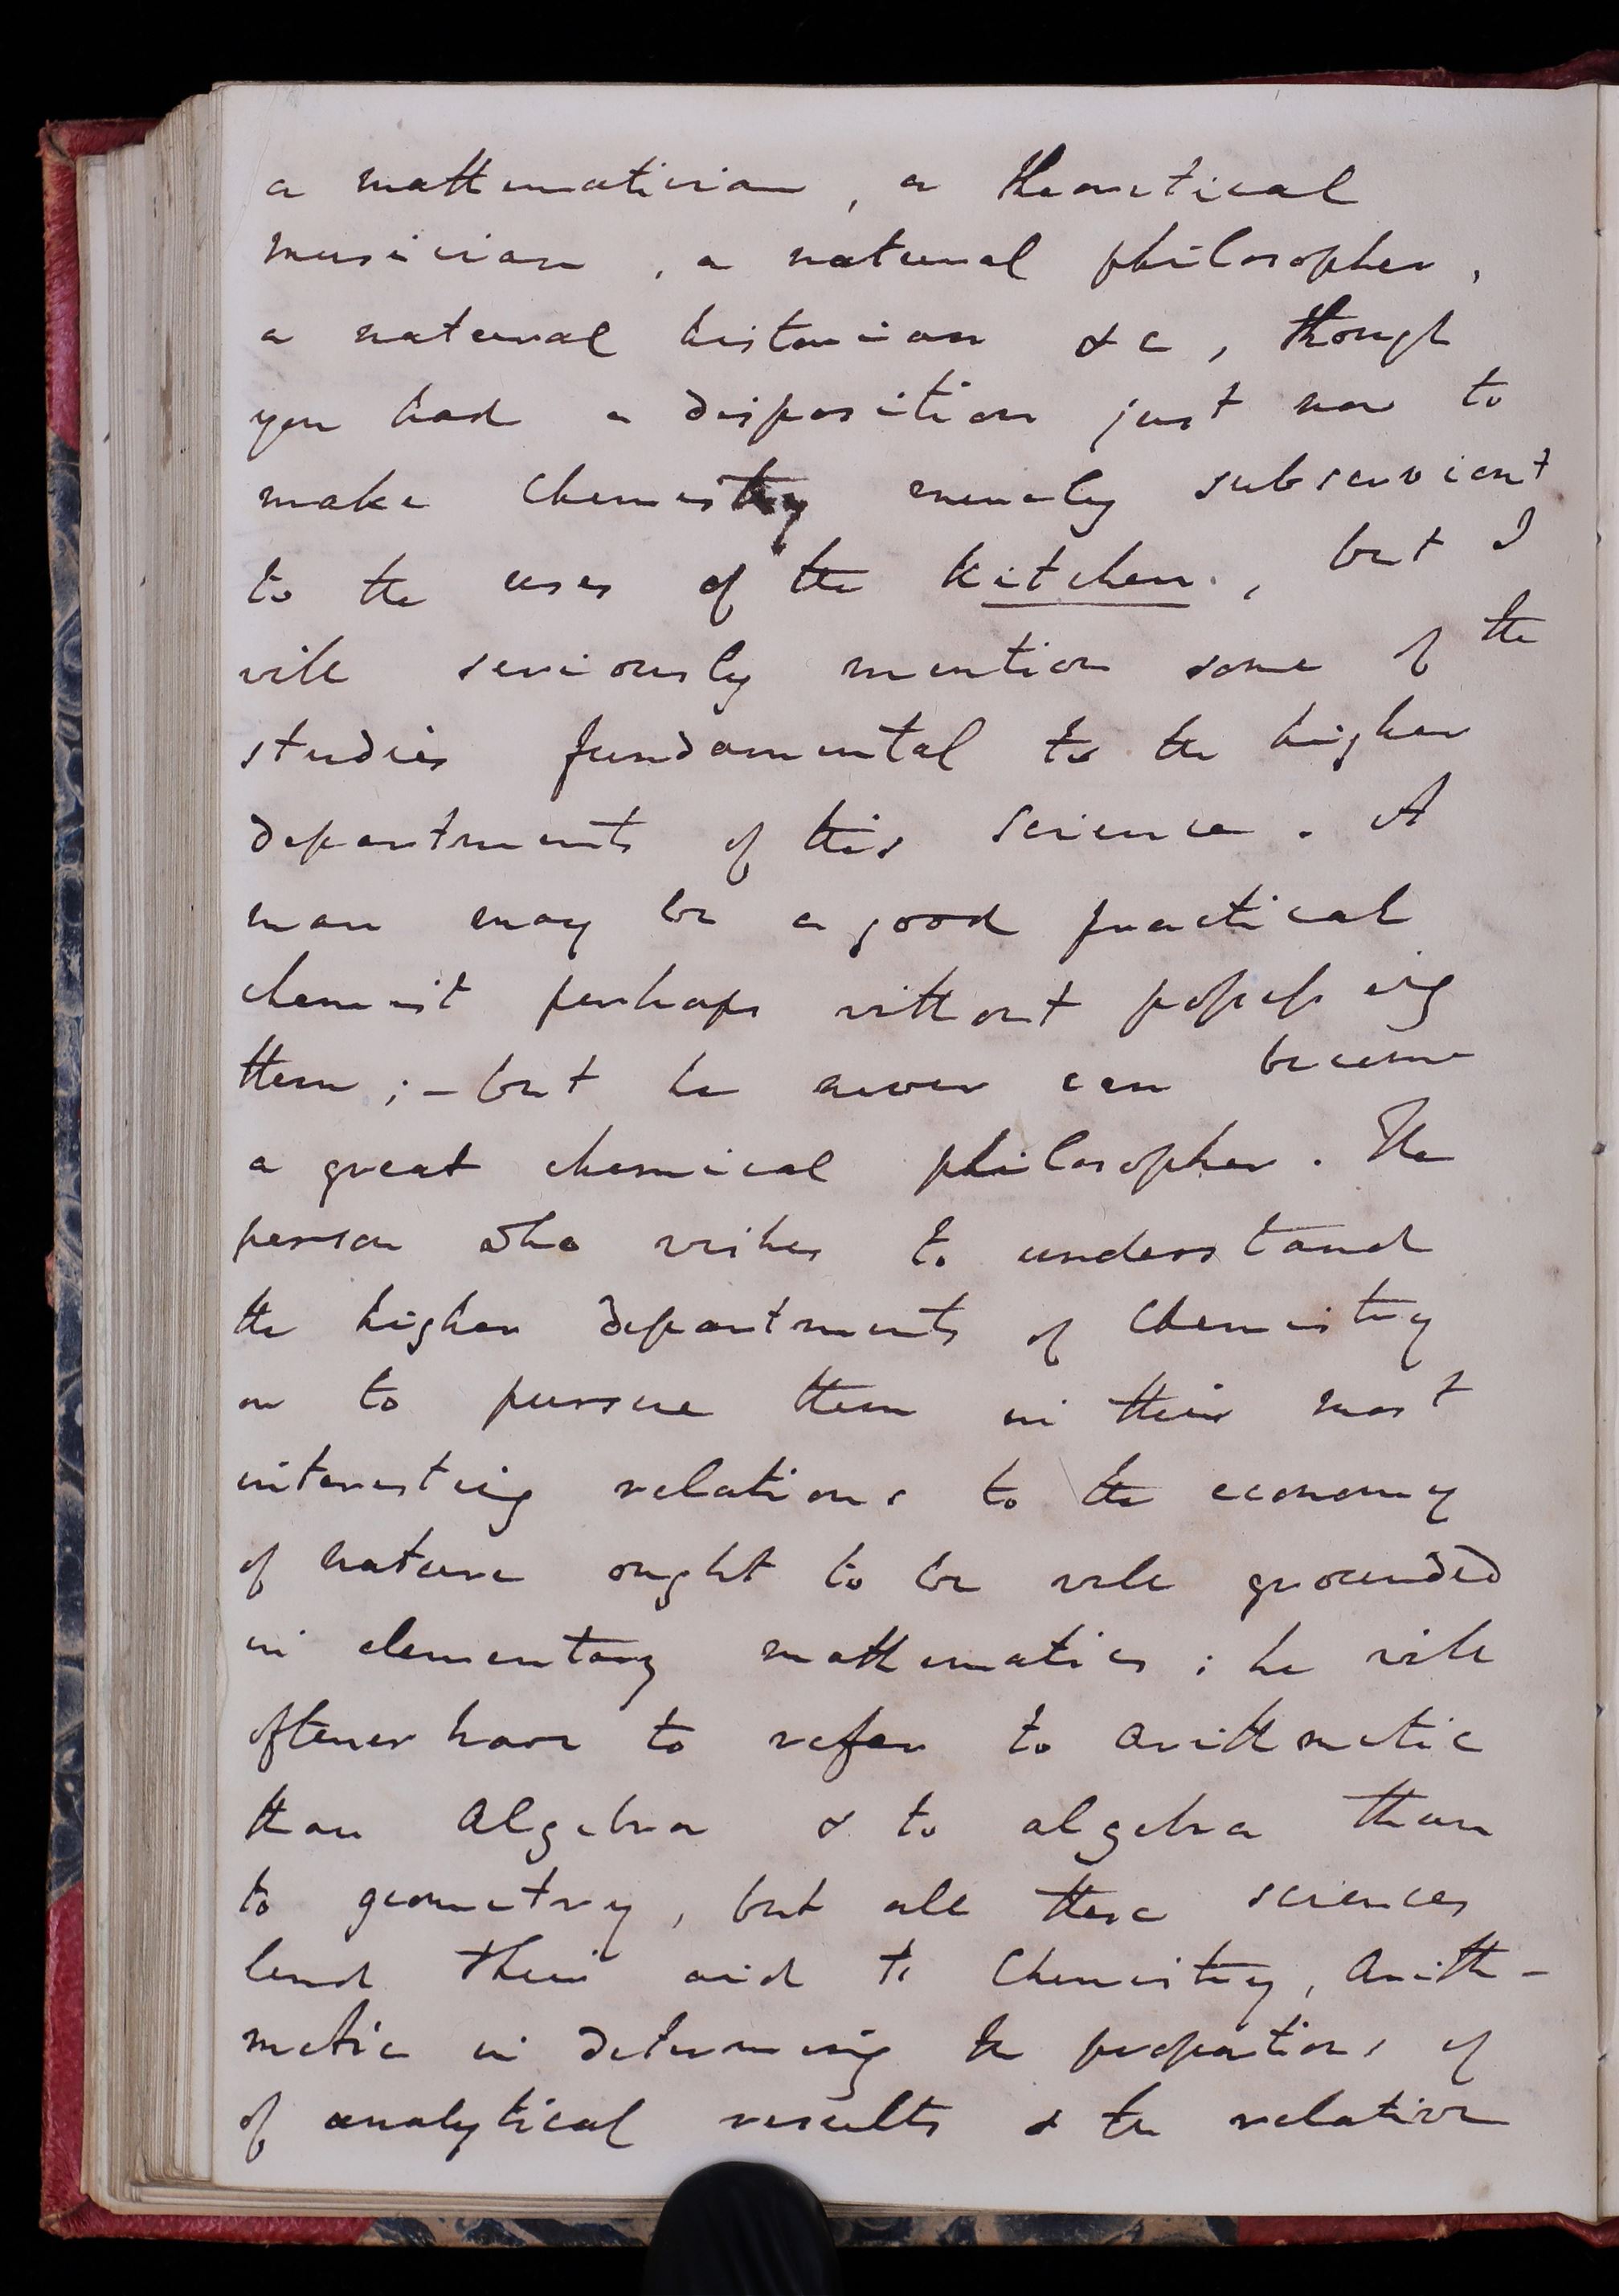 a mathematician, a theoretical
musician, a natural philosopher,
a natural historian &c, though
you had a disposition just now to
make Chemistry merely subservient
to the uses of the kitchen., but I
will seriously mention some of the
studies fundamental to the higher
departments of this Science. A
man may be a good practical
chemist perhaps without possessing
them; – but he never can become
a great chemical philosopher. The
person who wishes to understand
the higher departments of Chemistry
or to pursue them in their most
interesting relations to the economy
of nature ought to be well grounded
in elementary mathematics; he will
oftener have to refer to arithmetic
than Algebra & to algebra than
to geometry, but all these sciences
lend their aid to Chemistry, Arith-
metic in determing the proportions of
of analytical results & the relative